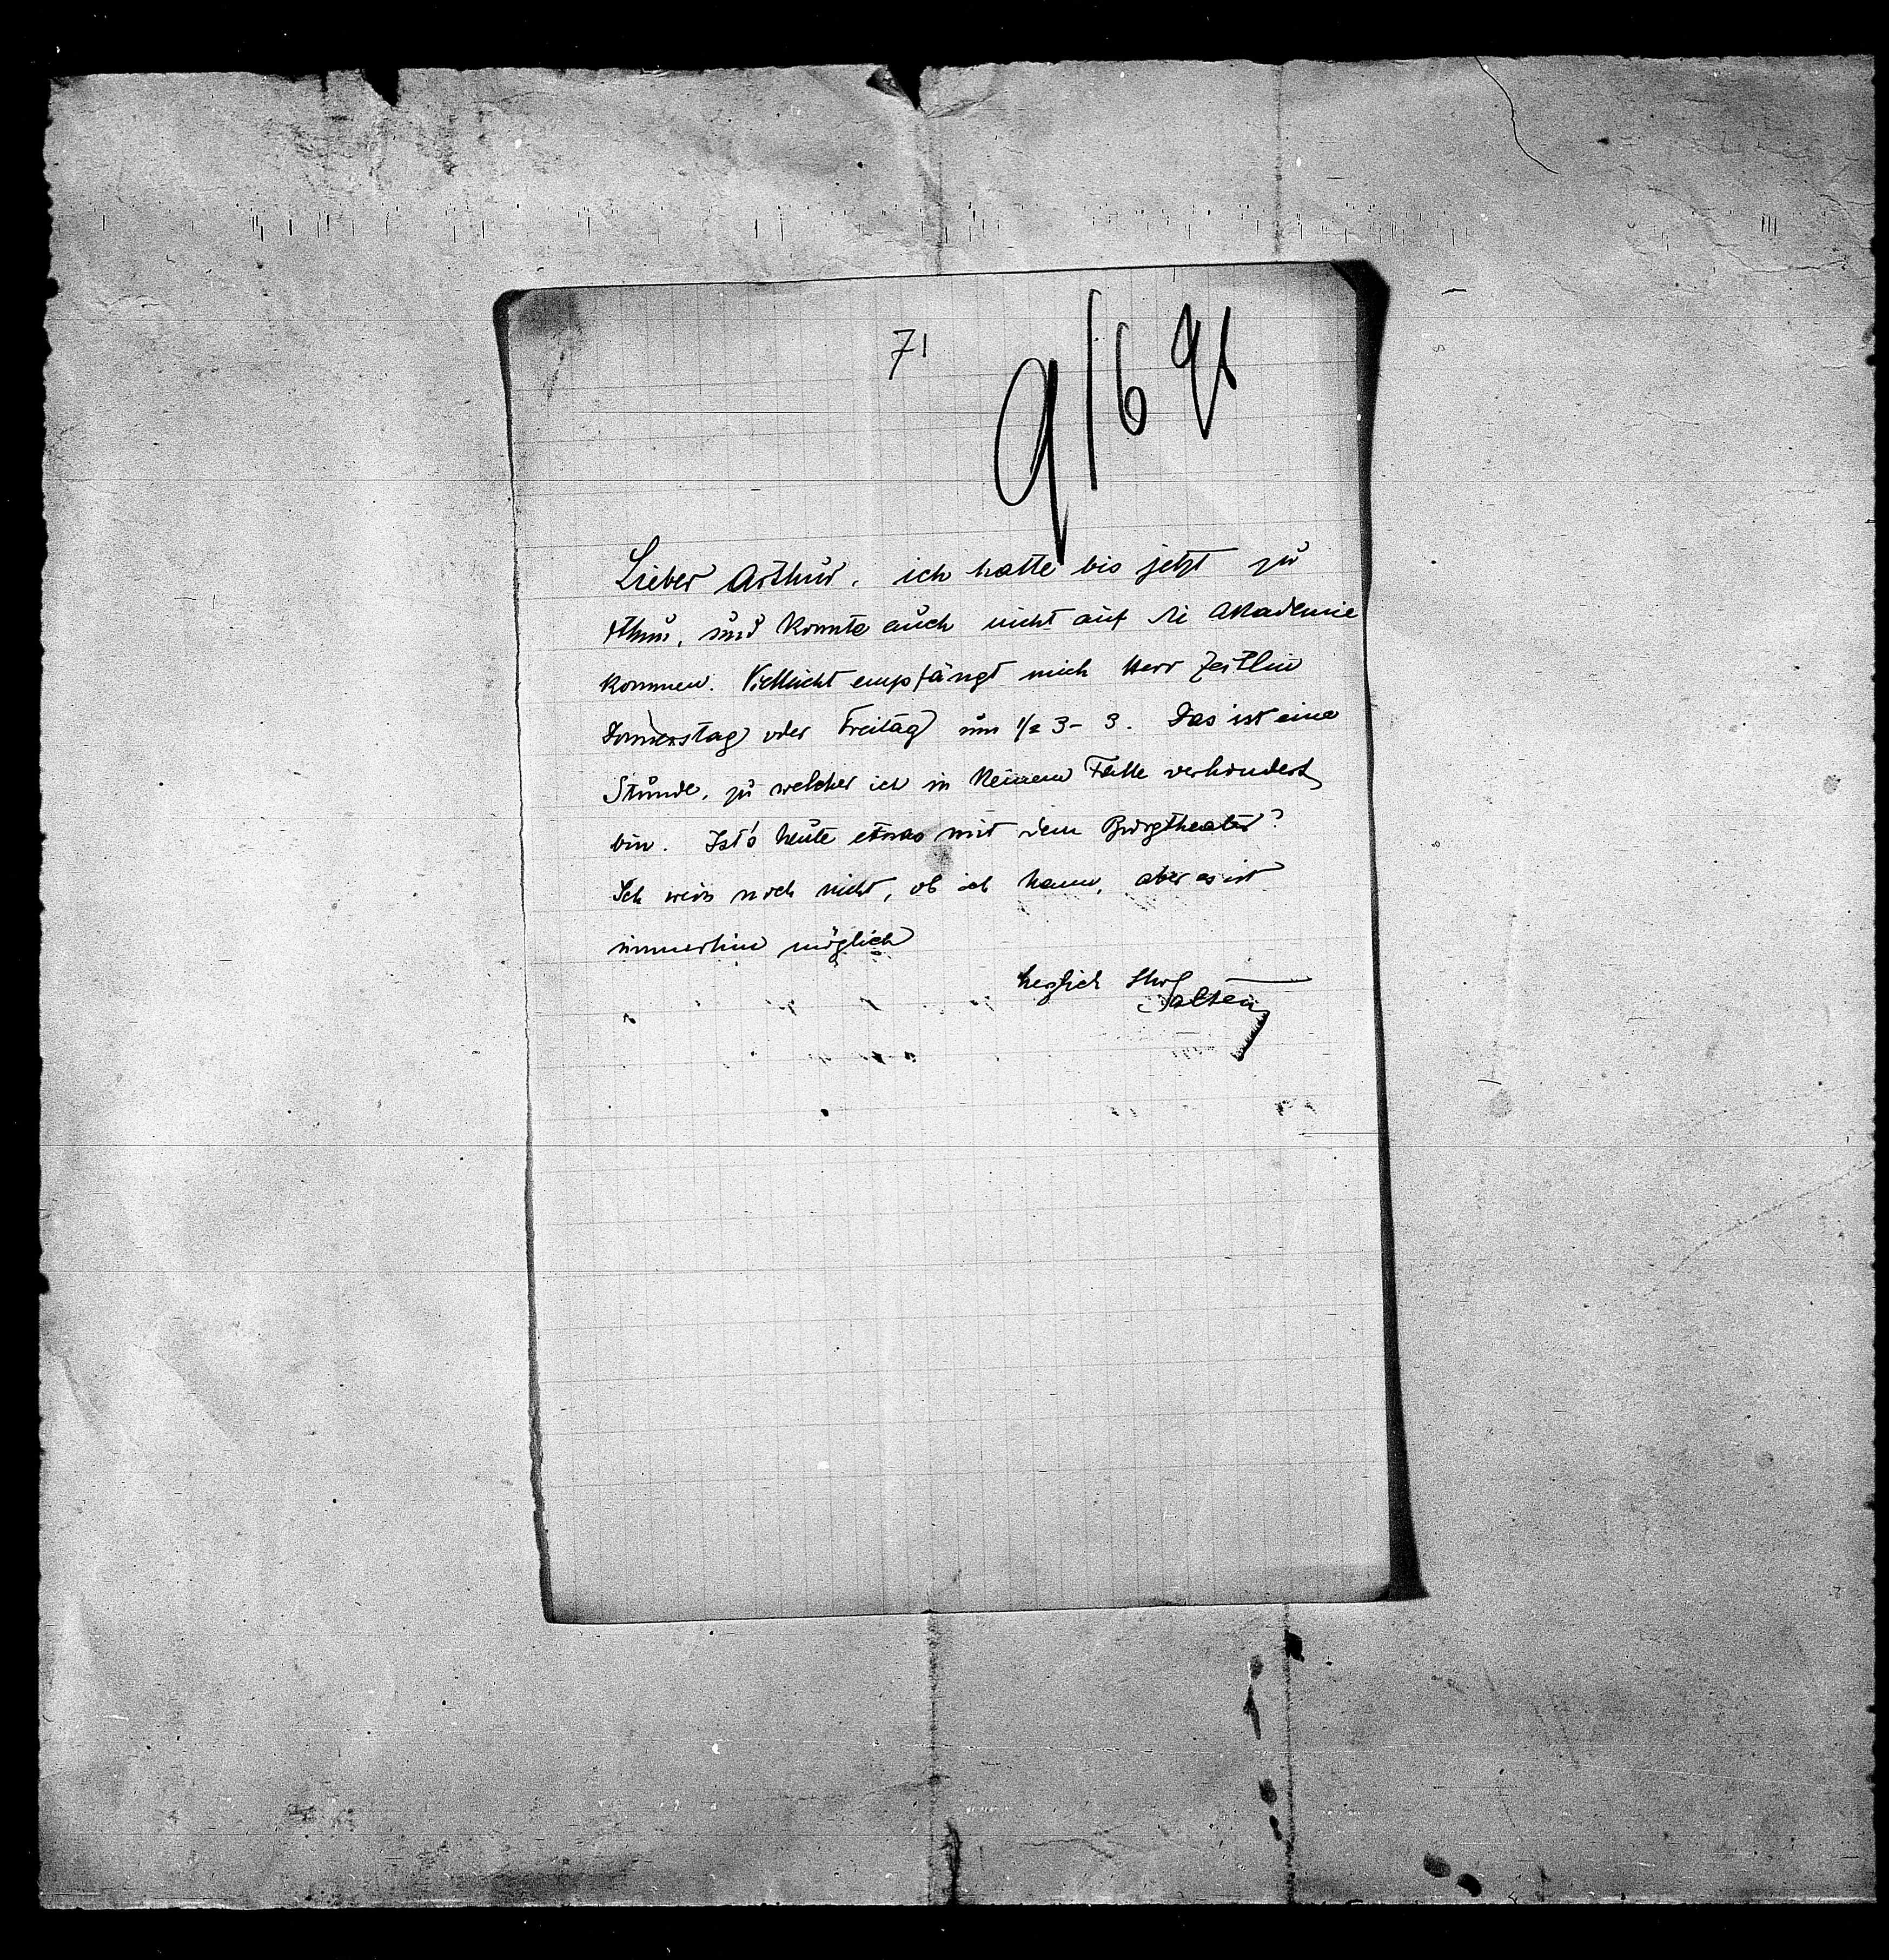 71
9/6 96
Lieber Arthur, ich hatte bis jetzt zu
thun, und konnte auch nicht auf die Akademie
kommen. Vielleicht empfängt mich Herr Zeitlin
Donnerstag oder Freitag um 1/2 3 - 3. Das ist eine
Stunde, zu welcher ich in keinem Falle verhindert
bin. Ist's heute etwas mit dem Burgtheater?
Ich weiss noch nicht, ob ich kann, aber es ist
immerhin möglich
herzlich Ihr
Salten